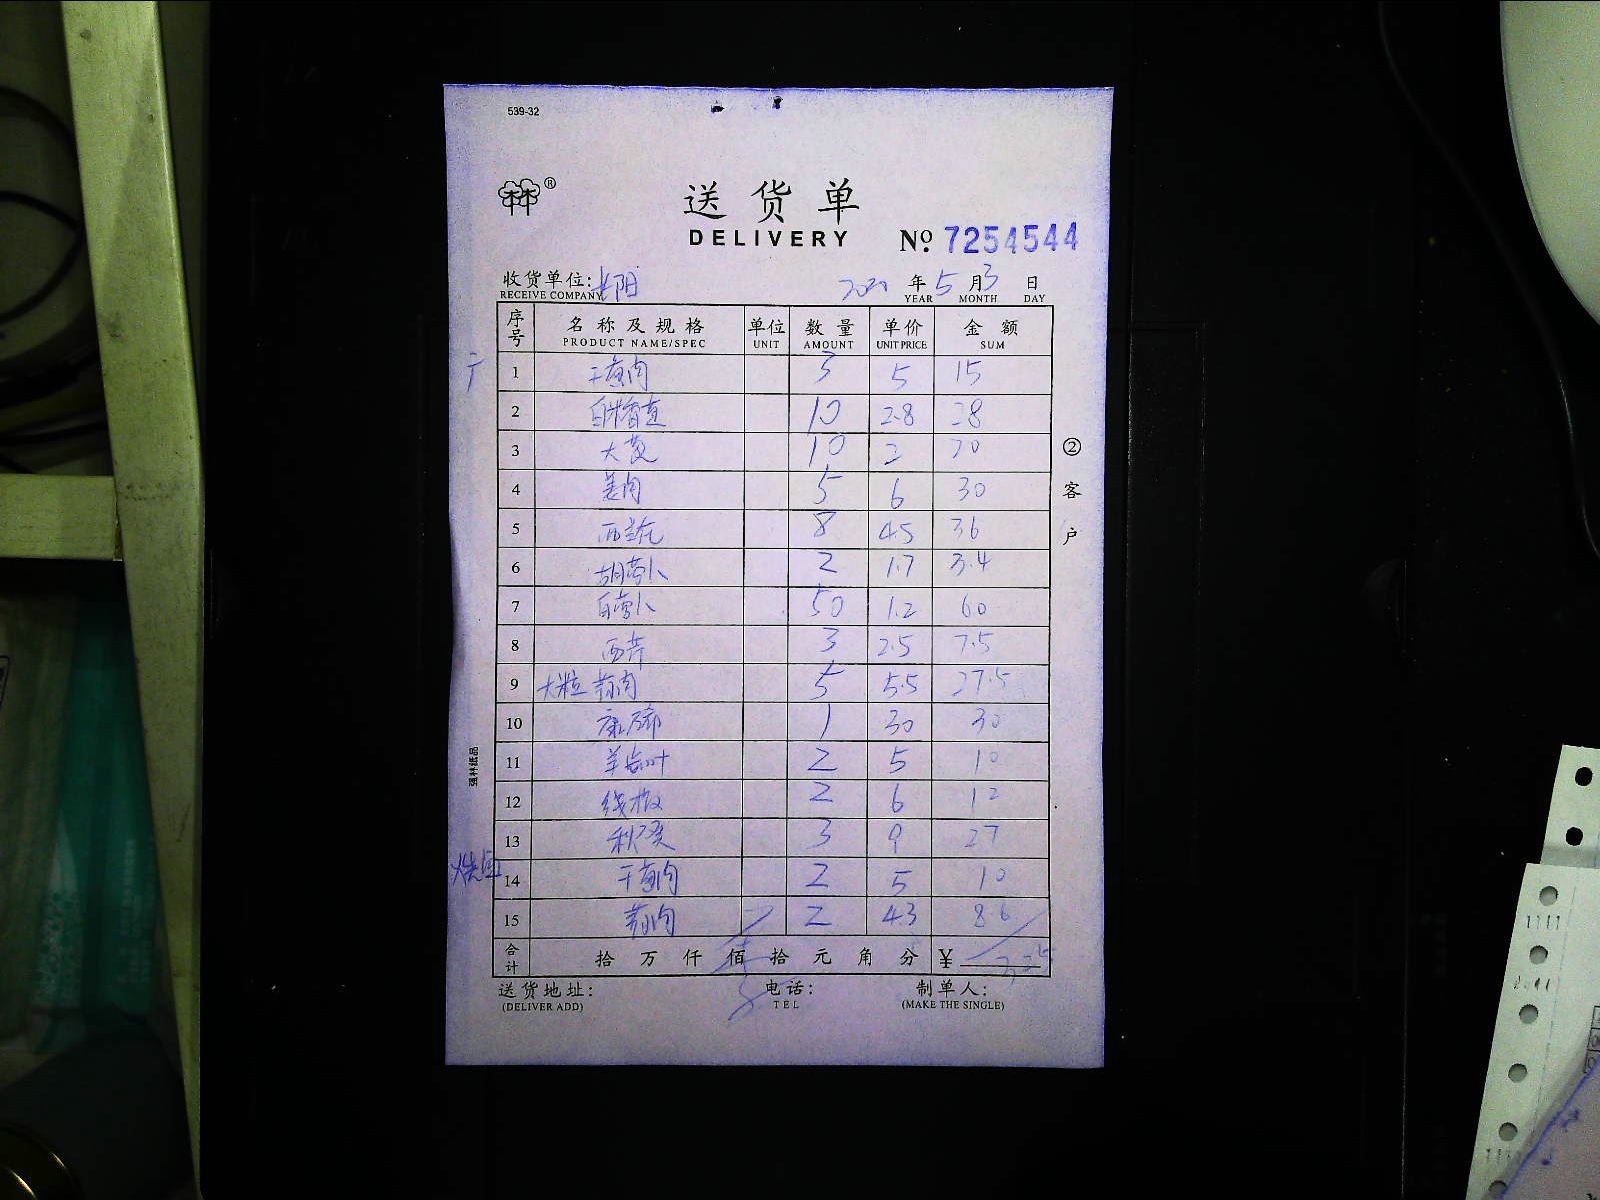 539-32
林®
送货单
DELIVERY № 7254544
收货单位: 年5月3日
RECEIVE COMPANY YEAR MONTH DAY
序号 名称及规格 单位 数量 单价 金额
PRODUCT NAME/SPEC UNIT AMOUNT UNIT PRICE SUM
1 干葱肉 3 5 15
2 10 2.8 28
3 大葱 10 2 20
4 姜肉 5 6 30
5 西兰花 8 4.5 36
6 胡萝卜 2 1.7 3.4
7 白萝卜 50 1.2 60
8 西芹 3 2.5 7.5
9 大粒蒜肉 5 5.5 27.5
10 1 30 30
11 2 5 10
12 线椒 2 6 12
13 秋葵 3 9 27
14 干葱肉 2 5 10
15 蒜肉 2 4.3 8.6
合计 拾 万 仟 佰 拾 元 角 分 ¥
送货地址: 电话: 制单人:
(DELIVER ADD) TEL (MAKE THE SINGLE)
②客户
强林纸品